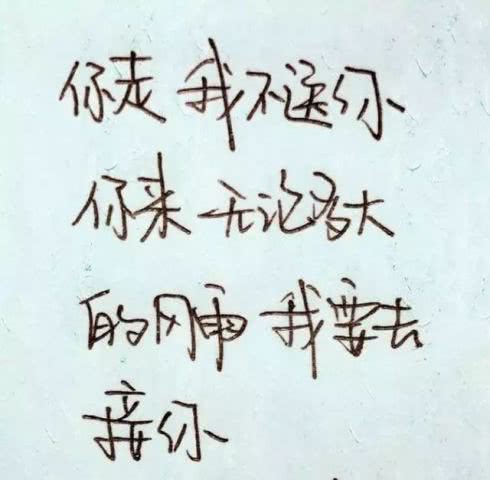 你走 我不送你
你来 无论多大
的风雨 我要去
接你